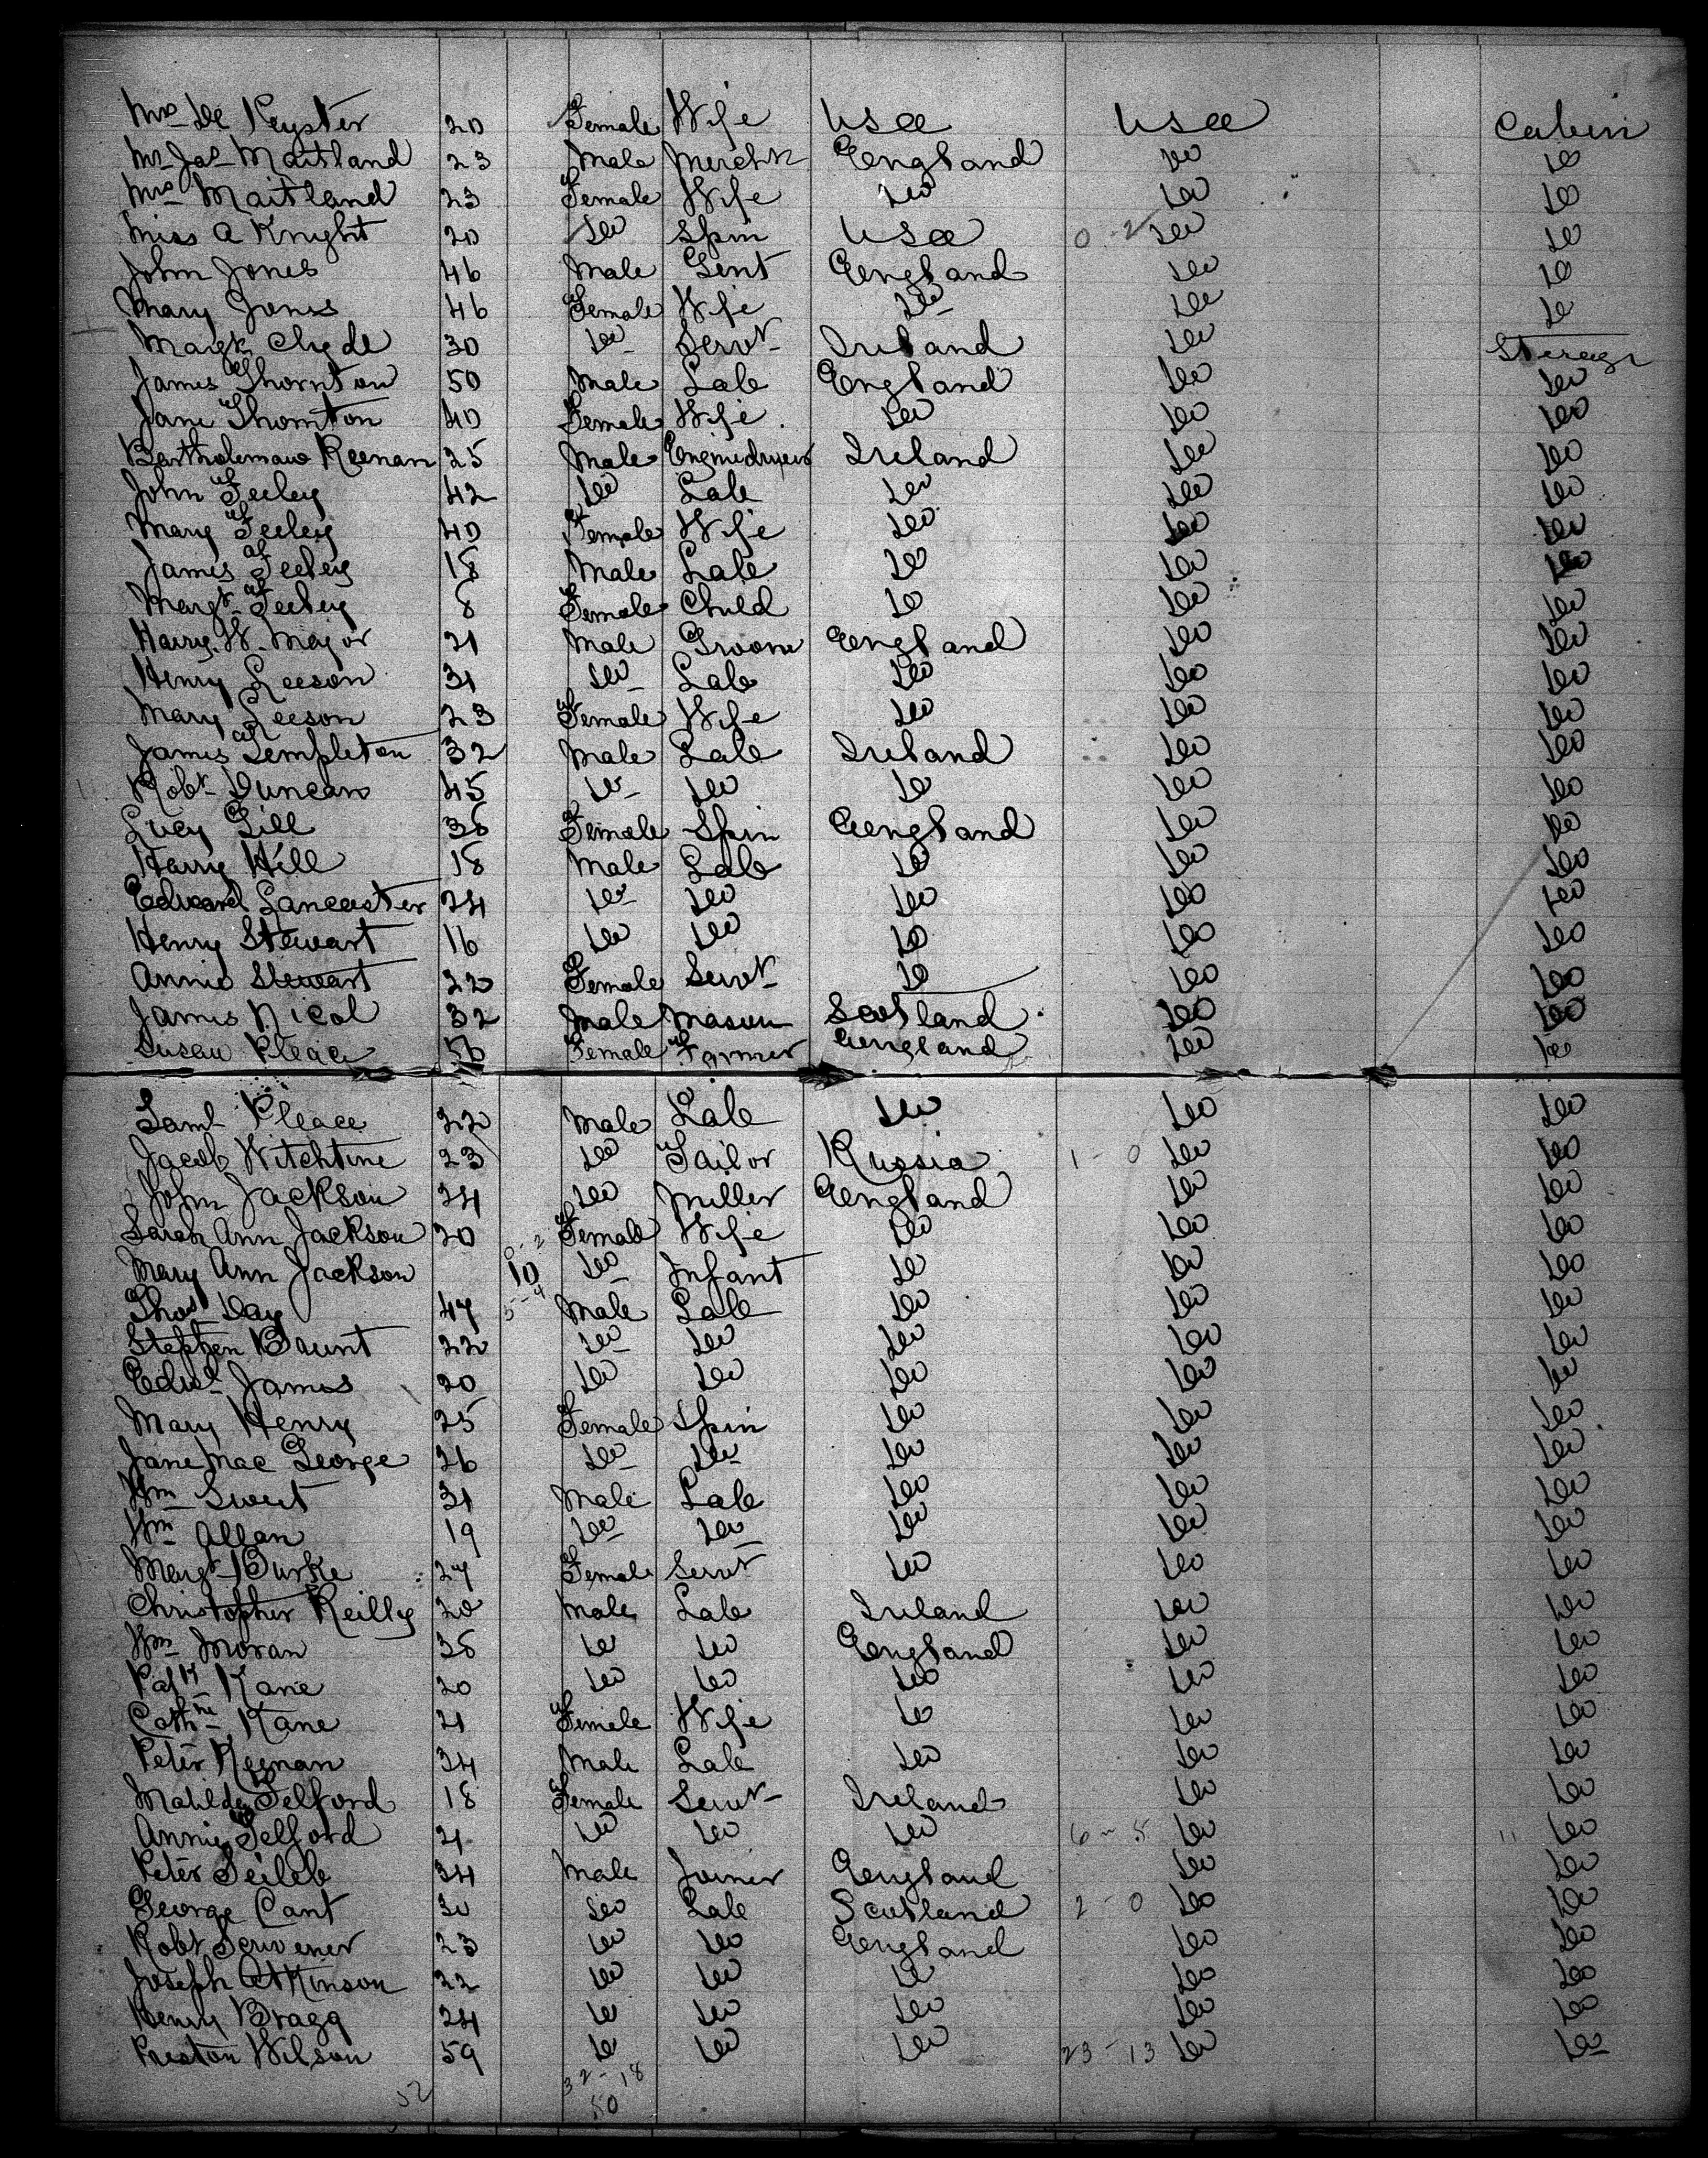 Mrs De Peyster 20 Female Wife USA USA Cabin
Mr Jas Maitland 23 Male Mercht England Do Do
Mrs Maitland 23 Female Wife Do Do Do
Miss A Knight 20 Do Spin USA 0-2 Do Do
John Jones 46 Male Gent England Do Do
Mary Jones 46 Female Wife Do Do Do
Margt Clyde 30 Do Servt Ireland Do Sterage
James Thornton 50 Male Lab England Do Do
Jane Thornton 40 Female Wife Do Do Do
Bartholemaw Keenan 25 Male Enginedriver Ireland Do Do
John Feeley 42 Do Lab Do Do Do
Mary Feeley 40 Female Wife Do Do Do
James Feeley 18 Male Lab Do Do Do
Margt Feeley 8 Female Child Do Do Do
Harry W. Major 21 Male Groom England Do Do
Henry Leeson 31 Do Lab Do Do Do
Mary Leeson 23 Female Wife Do Do Do
James Templeton 32 Male Lab Ireland Do Do
Robt Duncan 45 Do Do Do Do Do
Lucy Gill 36 Female Spin England Do Do
Harry Hill 18 Male Lab Do Do Do
Edward Lancaster 24 Do Do Do Do Do
Henry Stewart 16 Do Do Do Do Do
Annie Stewart 22 Female Servt Do Do Do
James Nicol 32 Male Mason Scotland Do Do
Susan Pleace 56 Female Farmer England Do Do
Saml Pleace 22 Male Lab Do Do Do
Jacob Witchtine 23 Do Tailor Russia 1-0 Do Do
John Jackson 24 Do Miller England Do Do
Sarah Ann Jackson 20 Female Wife Do Do Do
Mary Ann Jackson 10 Do Infant Do Do Do
Thos Day 47 5-4 Male Lab Do Do Do
Stephen Baunt 22 Do Do Do Do Do
Edwd James 20 Do Do Do Do Do
Mary Henry 25 Female Spin Do Do Do
Jane Mac George 26 Do Do Do Do Do
Wm Sweet 31 Male Lab Do Do Do
Wm Allan 19 Do Do Do Do Do
Margt Burke 27 Female Servt Do Do Do
Christopher Reilly 20 Male Lab Ireland Do Do
Wm Moran 35 Do Do England Do Do
Patk Kane 20 Do Do Do Do Do
Cathne Kane 21 Female Wife Do Do Do
Peter Keenan 34 Male Lab Do Do Do
Matilda Telford 18 Female Servt Ireland Do Do
Annie Telford 21 Do Do Do 6-5 Do 11 Do
Peter 34 Male Joiner England Do Do
George Cant 30 Do Lab Scotland 2-0 Do Do
Robt Scrivener 23 Do Do England Do Do
Joseph Atkinson 22 Do Do Do Do Do
Henry Bragg 24 Do Do Do Do Do
Preston Wilson 59 Do Do Do 23-13 Do Do
52 32-18
50